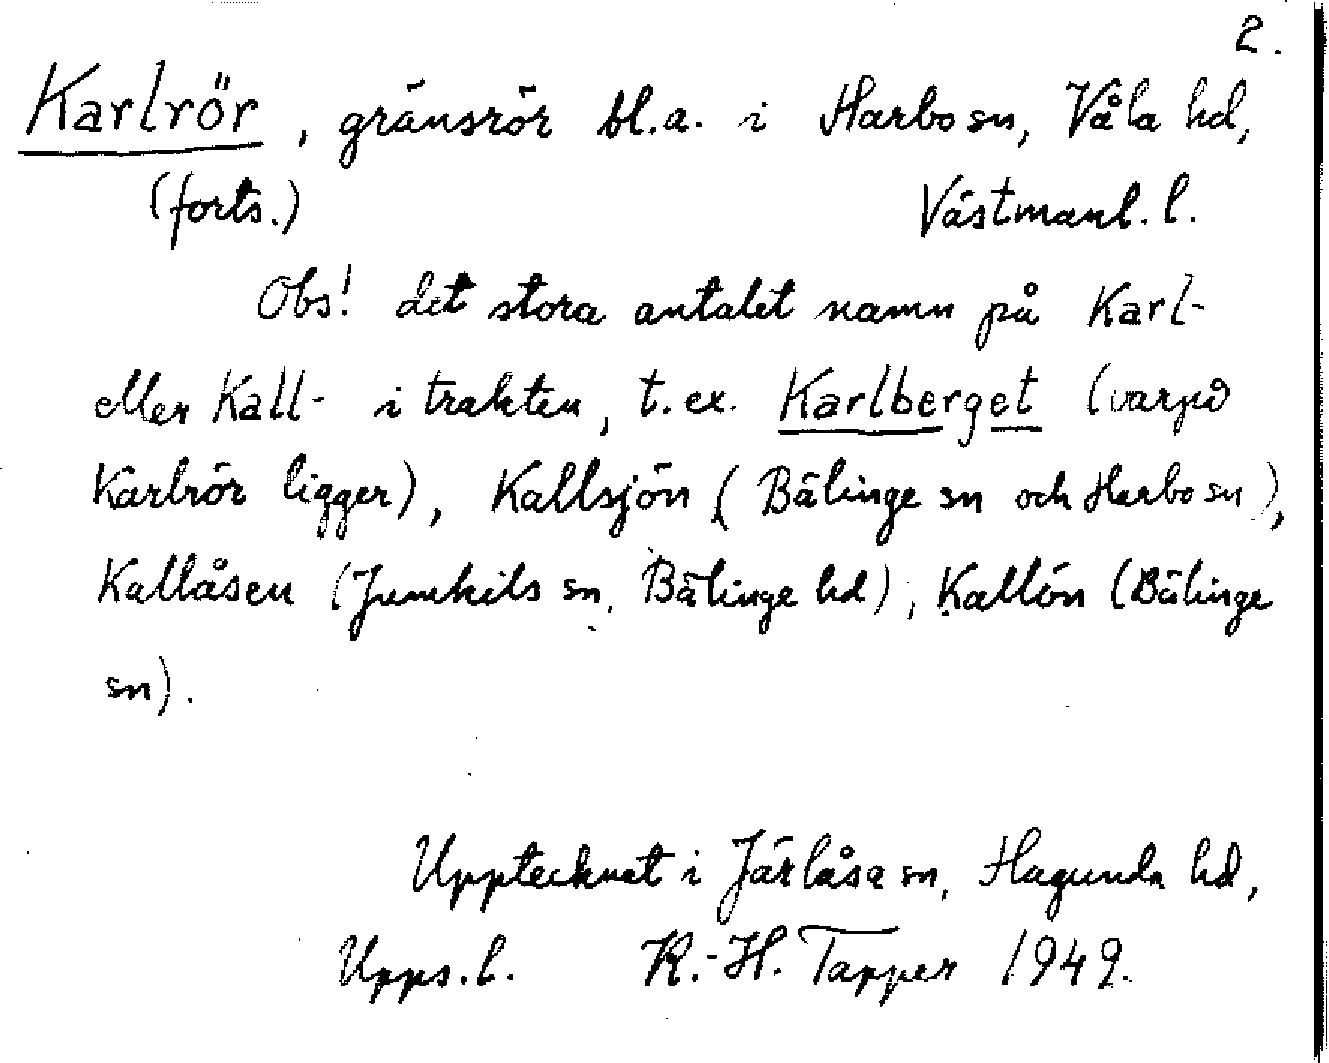 2.
Karlrör, gränsrör bl.a. i Harbo sn, Våla hd,
(forts.) Västmanl. l.
Obs! det stora antalet namn på Karl-
eller Kall- i trakten, t.ex. Karlberget (varpå
Karlrör ligger), Kallsjön (Bälinge sn och Harbo sn),
Kallåsen (Jumkils sn, Bälinge hd), Kallön (Bälinge
sn).
Upptecknat i Järlåsa sn, Hagunda hd,
Upps. l. K.-H. Tapper 1949.